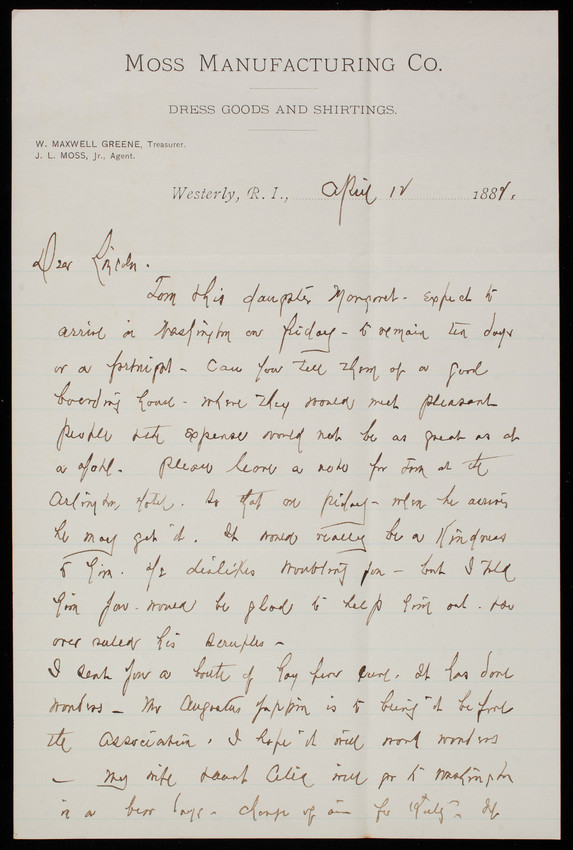 MOSS MANUFACTURING CO.
DRESS GOODS AND SHIRTINGS.
W. MAXWELL GREENE, Treasurer.
J. L. MOSS, Jr., Agent.
Westerly, R. I., April 12 1884.
Dear Lincoln.
Tom & his daughter Margaret - expect to
arrive in Washington on Friday - to remain ten days
or a fortnight - Can you tell them of a good
boarding house - where they would meet pleasant
people & the expense would not be as great as at
a Hotel. Please leave a note for Tom at the
Arlington Hotel. So that on Friday - when he arrives
he may get it. It would really be a kindness
to him. He dislikes troubling you - but I told
him you would be glad to help him out.
over ruled his scruples -
I sent you a bottle of hay fever cure. It has done
wonders - Mr Augustus is to bring it before
the Association. I hope it will work wonders
- My wife & aunt Celia will go to Washington
in a few days - change of air for